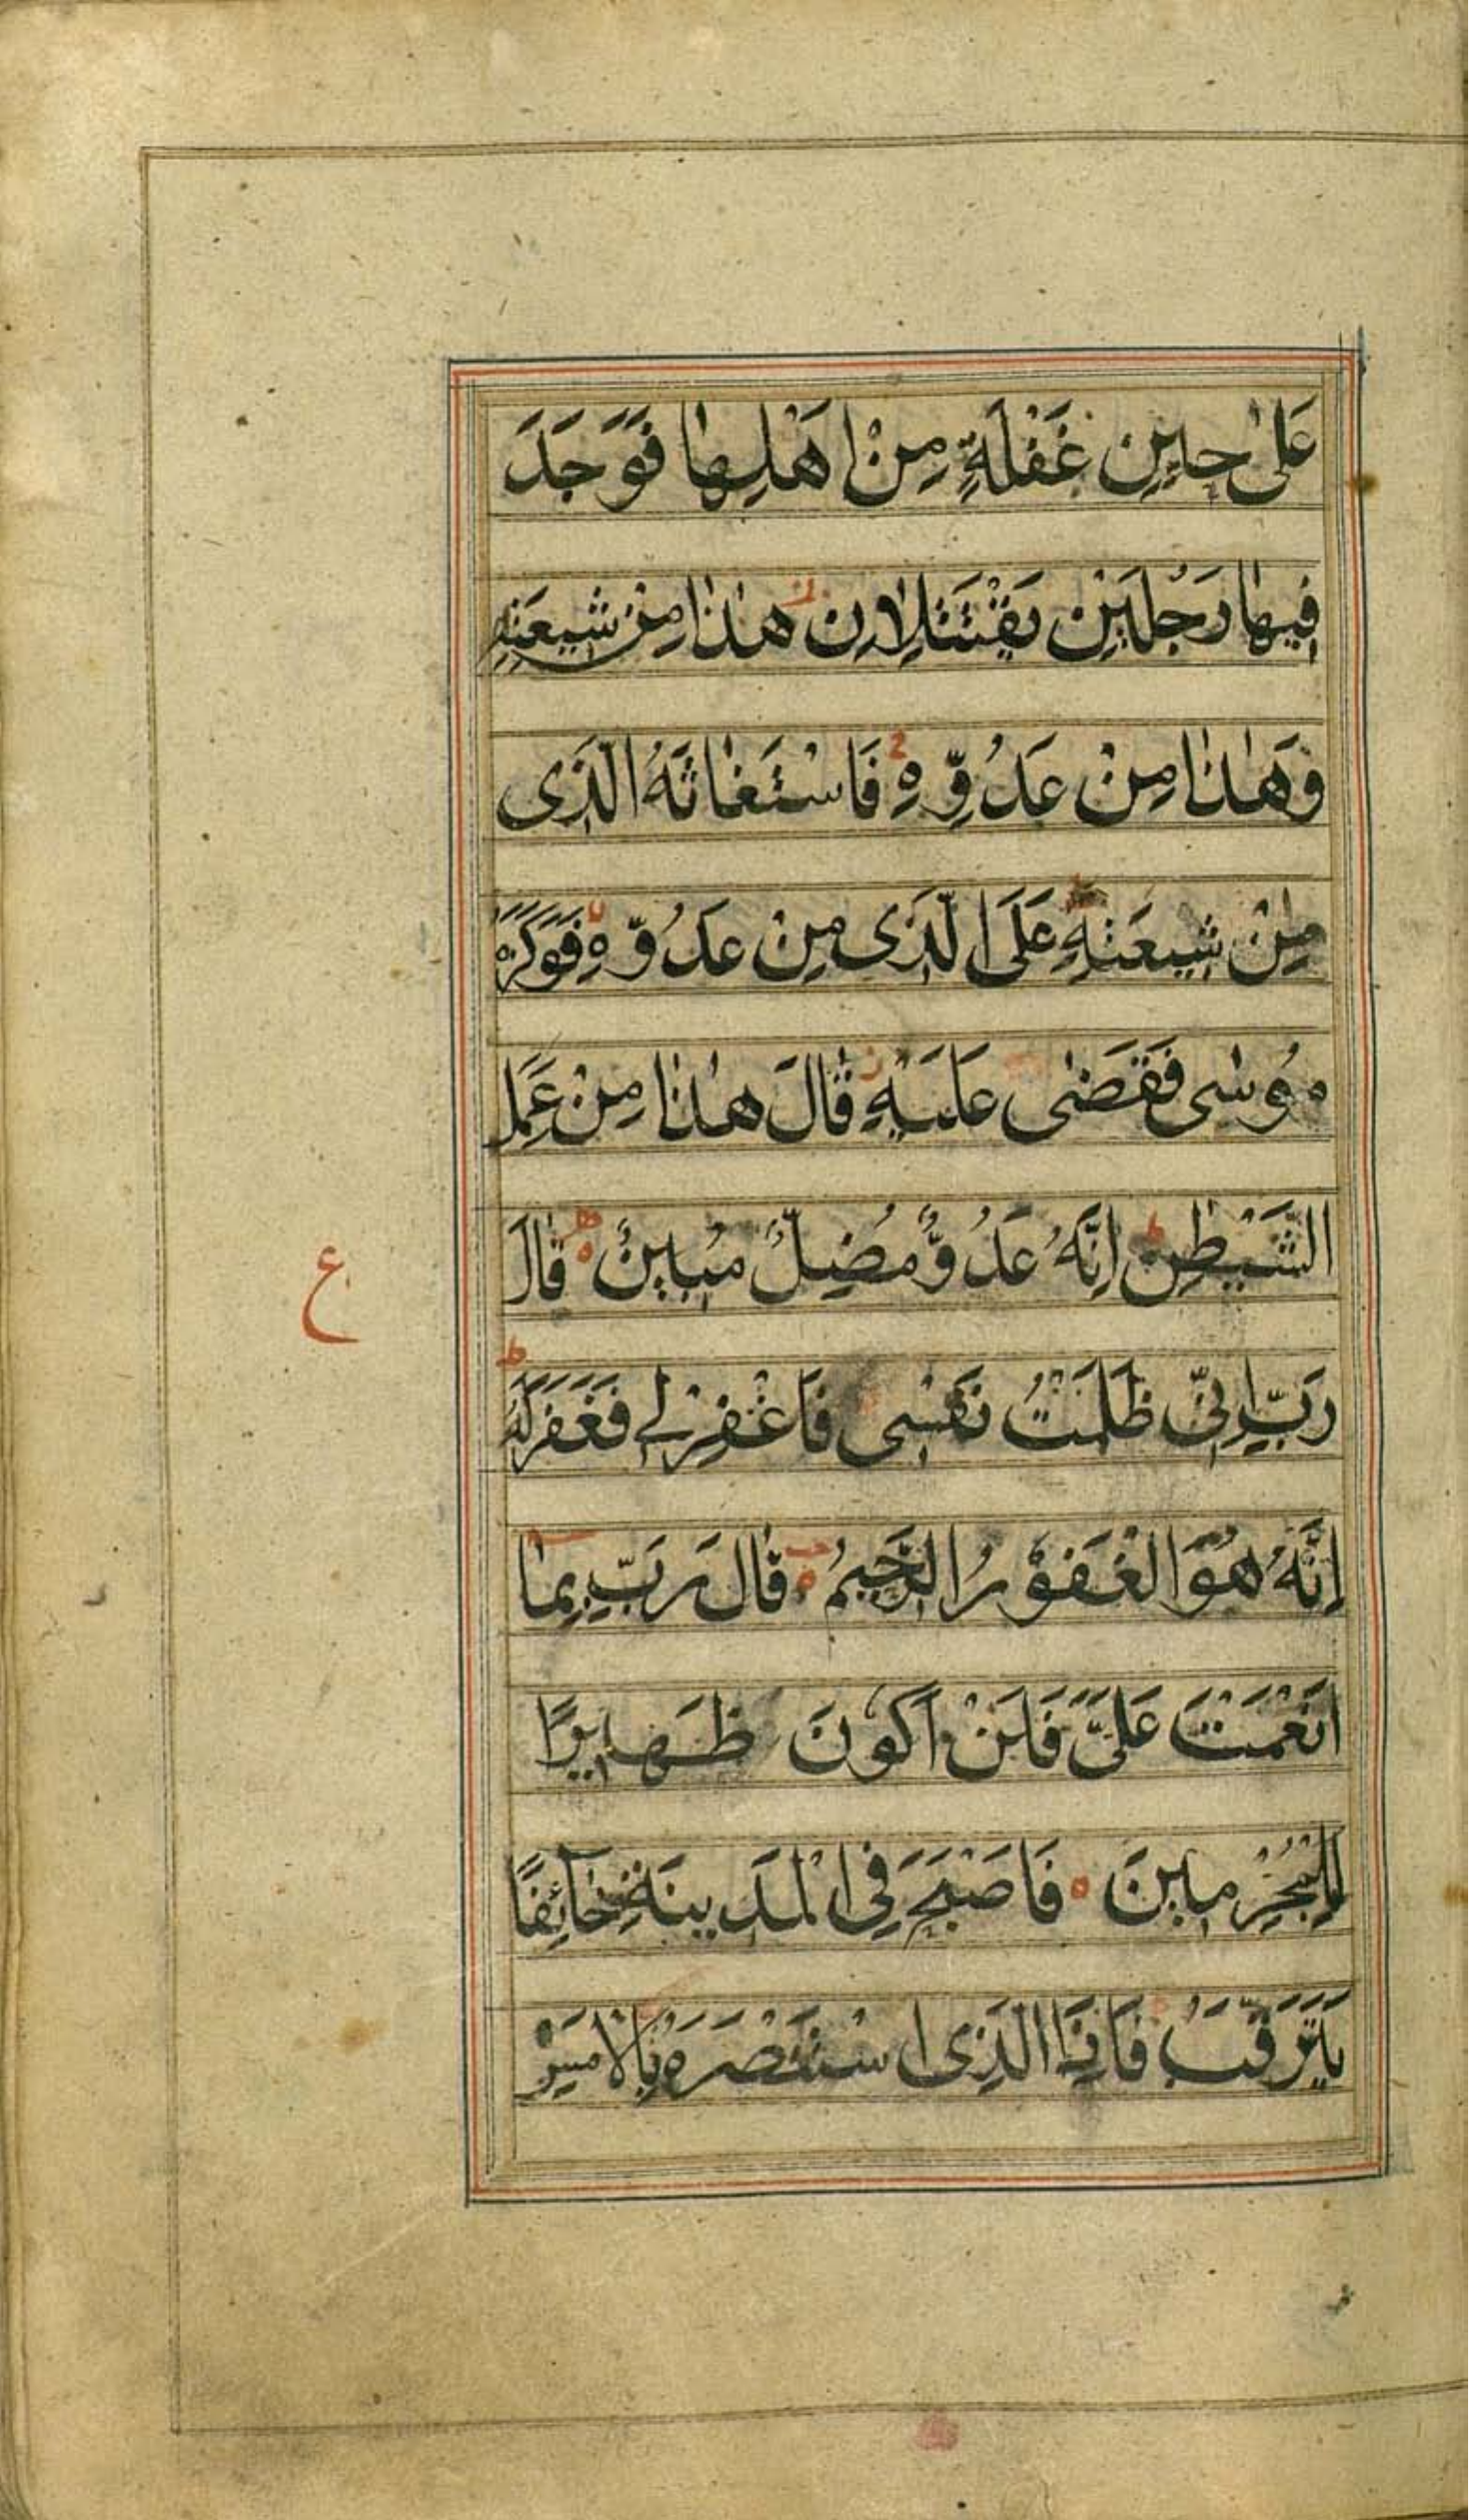 عَلىٰ حِينِ غَفْلَةٍ مِنْ اَهْلِهٰا فَوَجَدَ
فِيهٰا رَجُلَيْنِ يَقْتَتِلاٰنِ هٰذٰا مِنْ شِيعَتِهِ
وَهٰذٰا مِنْ عَدُوِّهِ فَاسْتَغٰاثَهُ الَّذى
مِنْ شِيعَتِهِ عَلَى الَّذى مِنْ عَدُوِّهِ فَوَكَزَهُ
مُوسٰى فَقَضٰى عَلَيْهِ قٰالَ هٰذٰا مِنْ عَمَلِ
الشَّيْطٰنِ اِنَّهُ عَدُوٌّ مُضِلٌّ مُبِينٌ قٰالَ
رَبِّ اِنِّى ظَلَمْتُ نَفْسِى فَاغْفِرْلِى فَغَفَرَلَهُ
اِنَّهُ هُوَ الْغَفُوْرُ الرَّحِيمُ قٰالَ رَبِّ بِمٰا
اَنْعَمْتَ عَلَىَّ فَلَنْ اَكُونَ ظَهِيرًا
لِلْمُجْرِمِينَ فَاَصْبَحَ فِى الْمَدِينَةِ خٰآئِفًا
يَتَرَقَّبُ فَاِذَا الَّذِى اسْتَنْصَرَهُ بِالْاَمْسِ
ع